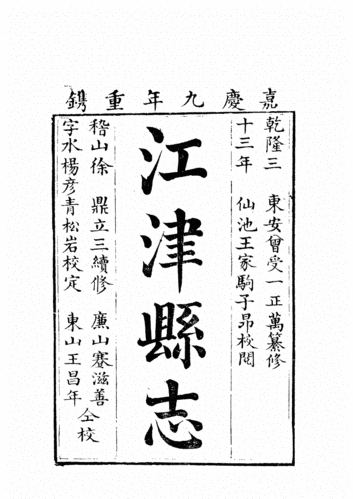 嘉慶九年重鐫
乾隆三十三年
東安曾受一正萬纂修
仙池王家駒子昂校閱
江津縣志
稽山徐鼎立三續修
字水楊彥青松岩校定
廉山蹇滋善
東山王昌年
仝校